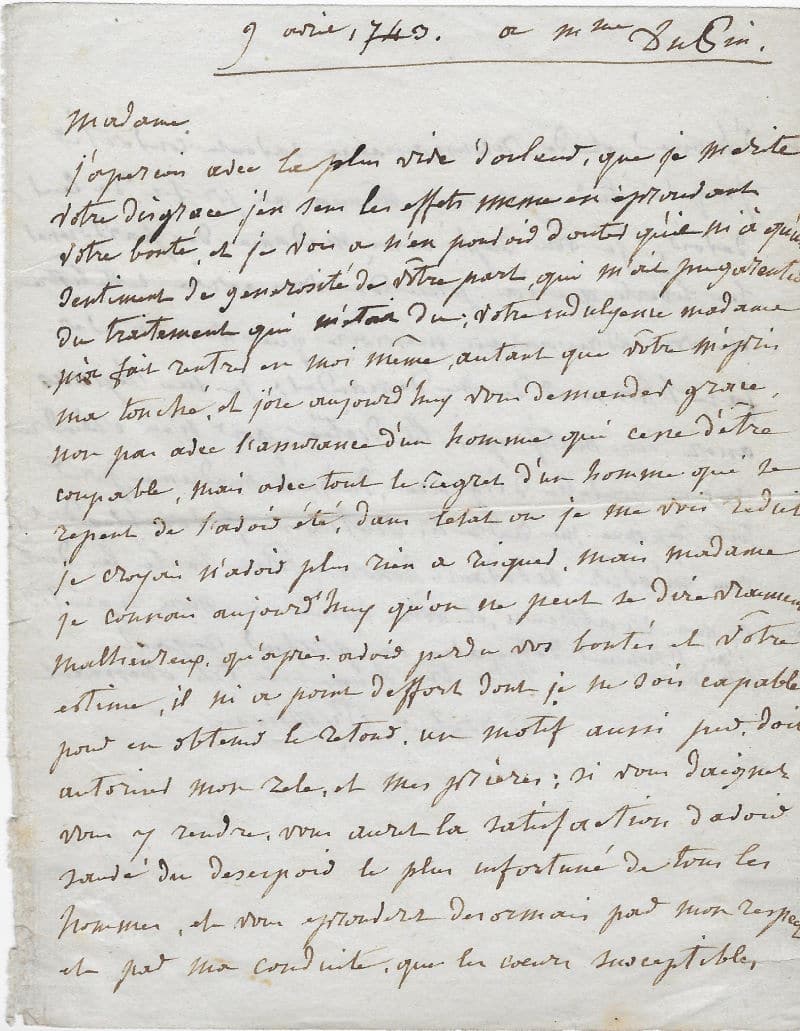 9 avril 1743. a mme Dupin.
Madame
j'apercois avec la plus vive douleur, que je merite
votre disgrace j'en sens les effets meme en éprouvant
votre bonté, et je vois a n'en pouvoir douter qu'il ni à qu'un
sentiment de generosité de vôtre part, qui m'ait pu garentir
du traitement qui m'etoit du; votre indulgense madame
m'a fait rentrer en moi même, autant que vôtre mépris
ma touché, et j'ose aujourd'huy vous demander grace,
non pas avec l'assurance d'un homme qui cesse d'être
coupable, mais avec tout le regret d'un homme qui se
repent de l'avoir été, dans l'etat ou je me vois reduit
je croyais n'avoir plus rien a risquer, mais madame
je connois aujourd'huy qu'on ne peut se dire vraiment
malheureux, qu'après avoir perdu vos bontés et vôtre
estime, il ni a point d'effort dont je ne sois capable
pour en obtenir le retour. un motif aussi pur, doit
autoriser mon zele, et mes prières; si vous daignez
vous y rendre, vous aurez la satisfaction d'avoir
sauvé du desespoir le plus infortuné de tous les
hommes, et vous eprouverez desormais par mon respect
et par ma conduite, que les coeurs susceptibles